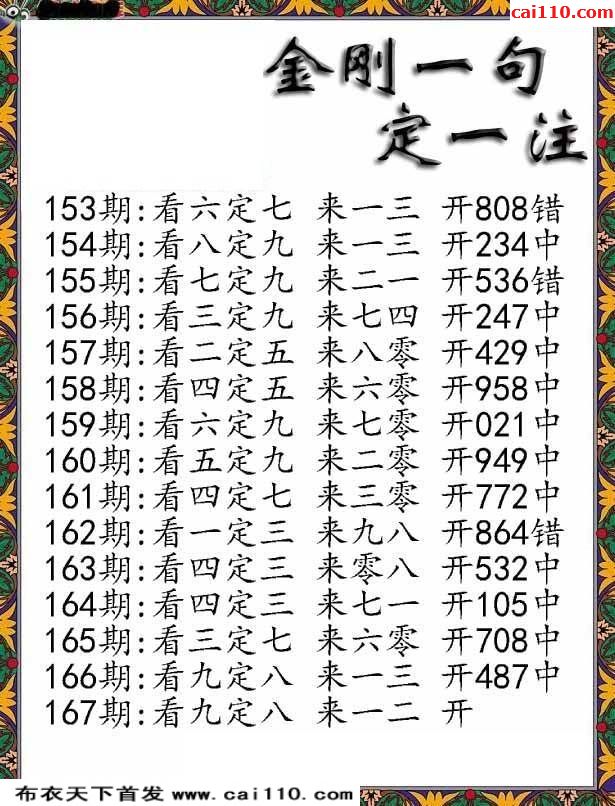 cai110.com
金刚一句
定一注
153期:看六定七 来一三 开808错
154期:看八定九 来一三 开234中
155期:看七定九 来二一 开536错
156期:看三定九 来七四 开247中
157期:看二定五 来八零 开429中
158期:看四定五 来六零 开958中
159期:看六定九 来七零 开021中
160期:看五定九 来二零 开949中
161期:看四定七 来三零 开772中
162期:看一定三 来九八 开864错
163期:看四定三 来零八 开532中
164期:看四定三 来七一 开105中
165期:看三定七 来六零 开708中
166期:看九定八 来一三 开487中
167期:看九定八 来一二 开
布衣天下首发 www.cai110.com